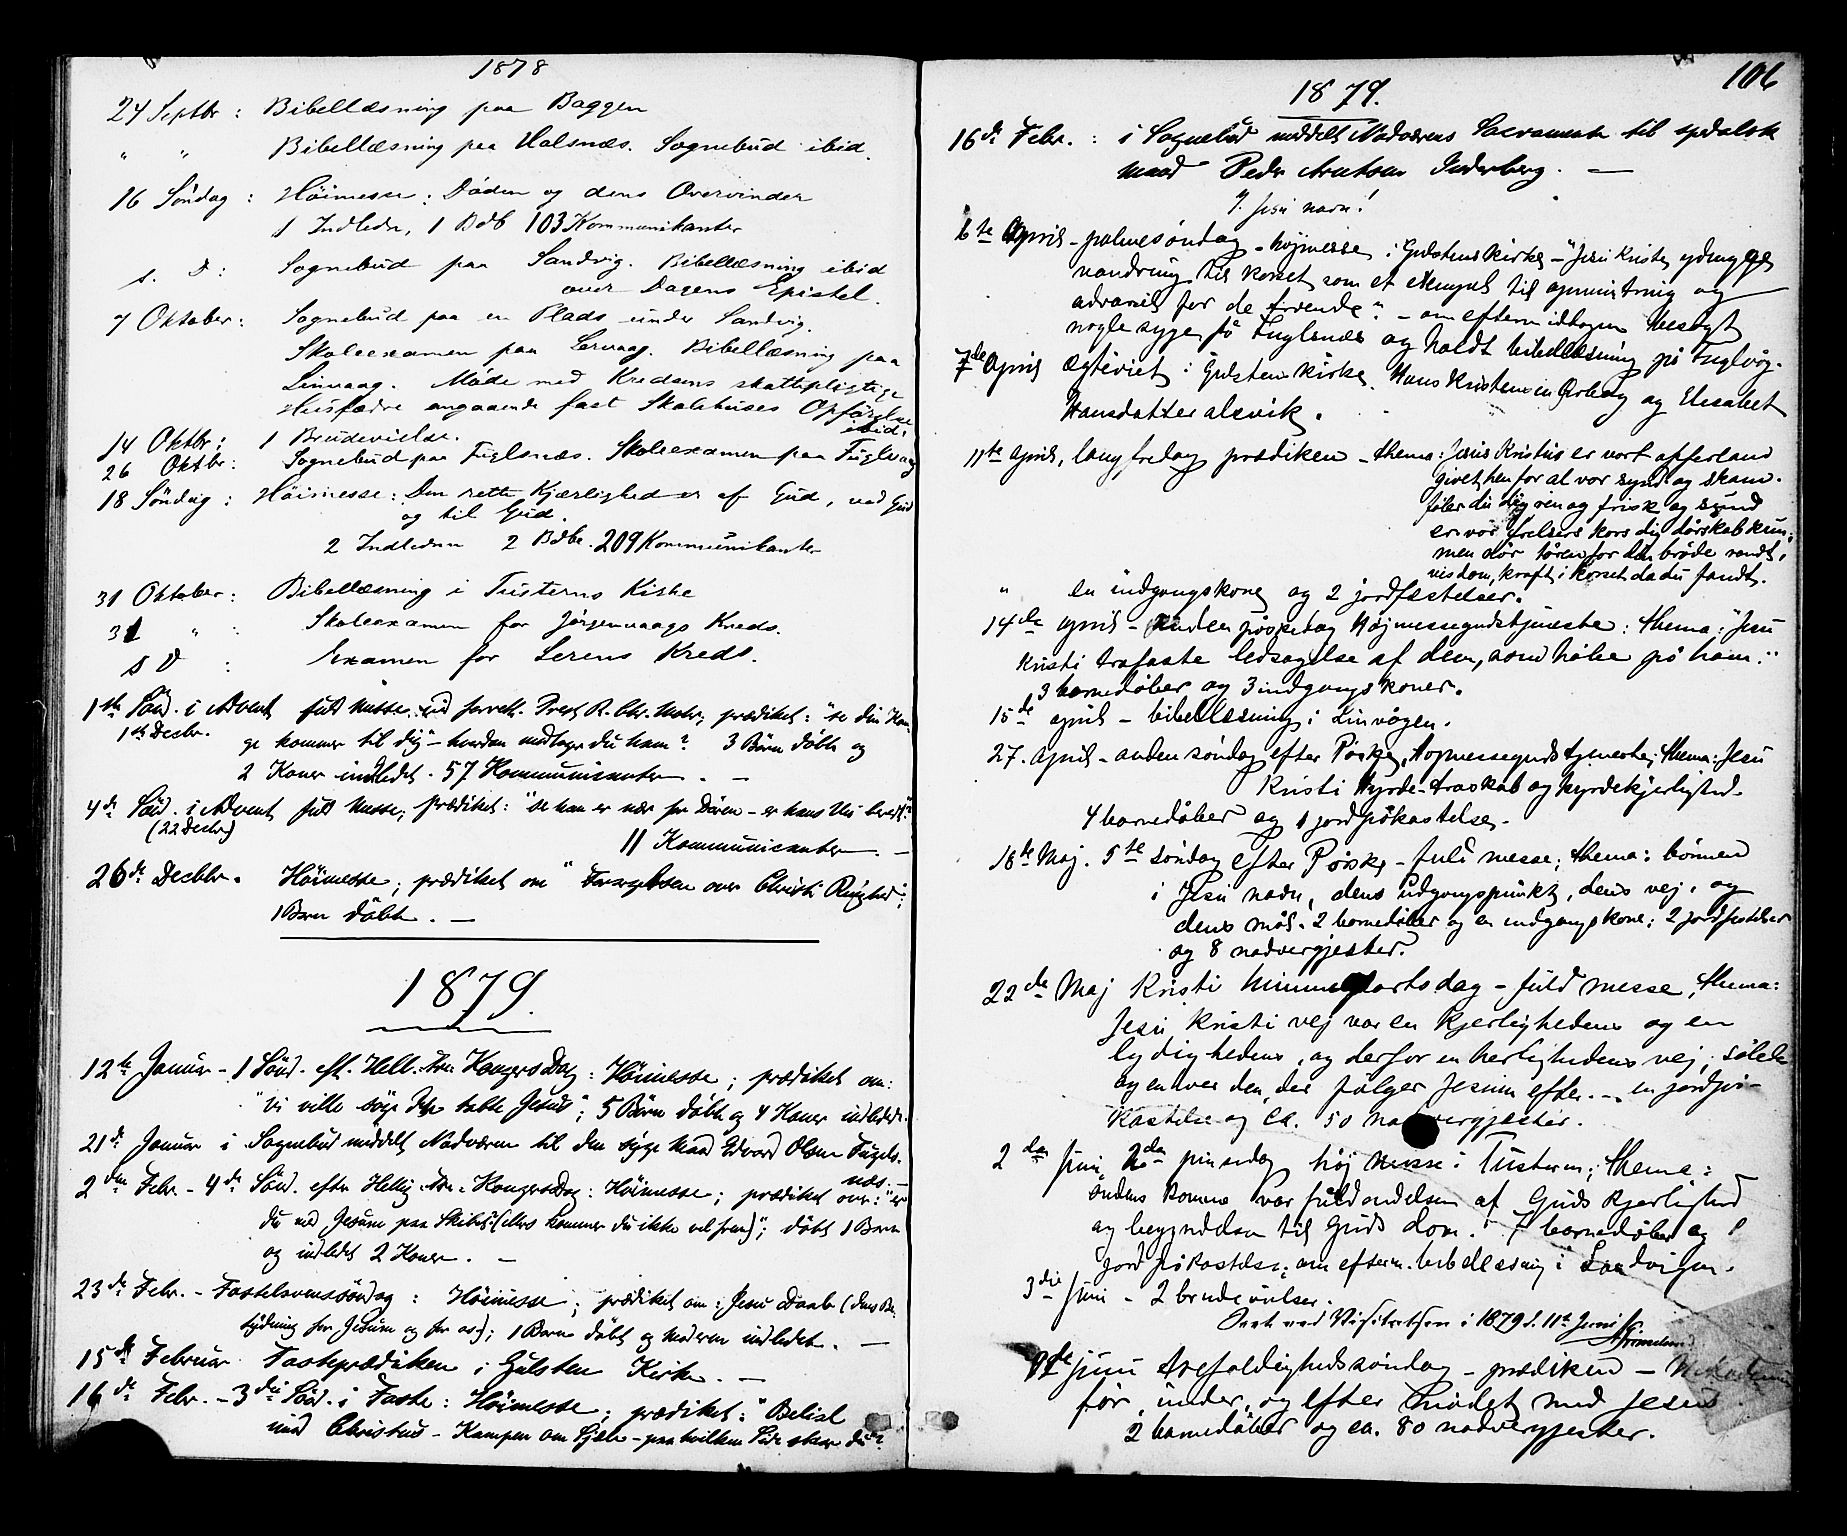 1878
24 Septbr : Bibellæsning paa Baggen
" " Bibellæsning paa Halsnæs. Sognebud ibid.
16 Söndag : Höimesse : Döden og dens Overvinder
1 Indledn, 1 Bdb 103 Kommunikanter
s. D : Sognebud paa Sandvig. Bibellæsning ibid
over Dagens Epistel.
7 Oktober : Sognebud paa en Plads under Sandvig.
Skoleexamen paa Lervaag. Bibellæsning paa
Linvaag. Möde med Kredsens skattepligtige
Husfædre angaaende fast Skolehuses Opförelse
ibid.
14 Oktbr : 1 Brudevielse.
26 Oktbr : Sognebud paa Fuglsnæs. Skoleexamen paa Fuglvaag
18 Söndag : Höimesse : Den rette Kjærlighed er af Gud, ved Gud
og til Gud.
2 Indledn 2 Bdbe. 209 Kommunikanter
31 Oktober : Bibellæsning i Tusterns Kirke
31 " : Skoleexamen for Jörgenvaags Kreds.
s D : Examen for Lerens Kreds.
1ste Sönd. i Advent fuld Messe, ved Prest R. Chr. prædiket : "se din Kon-
1ste Decbr. ge kommer til dig" - hvordan modtager du ham? 3 Börn döbte og
2 Koner indledet. 57 Kommunicanter. -
4de Sönd. i Advent fuld Messe; prædiket : "se han er nær for Dören - er hans Hus beredt?"
(22 Decbr) 11 Kommunicanter. -
26de Decbbr. Höimesse; prædiket om " over Christi Ringhed";
1 Barn döbt. -
1879.
12te Januar - 1 Sönd. eft. Hell. tre Kongers Dag : Höimesse ; prædiket om :
"Vi ville söge den tabte Jesus"; 5 Börn döbt og 4 Koner indledet.
21de Januar i Sognebud meddelt Nadværen til den syge Mand Edvard Olsen Fugels-
næs. -
2den Febr. - 4de Sönd. efter Hellig-tre-Kongers Dag : Höimesse ; prædiket over : "er
du med Jesum paa Skibet (ellers kommer du ikke vel frem)"; döbt 1 Barn
og indledet 2 Koner. -
23de Febr. - Fastelavnssöndag : Höimesse ; prædiket om : Jesu Daab (dens Be-
tydning for Jesum og for os); 1 Barn döbt og Moderen indledet. -
15de Februar Fasteprædiken i Gulsten Kirke. -
16de Febr. - 3die Sönd. i Faste : Höimesse ; prædiket : "Belial
mod Christus - Kampen om Sjæle - paa hvilken Side staar du?"
106
1879.
16de Febr. : i Sognebud meddelt Nadværens Sacramente til spedalsk
Mand Peder Knutsen Inderberg. -
I Jesu navn!
6te April - palmesøndag - højmesse i Gulstens kirke - "Jesu Kristi ydmyge
vandring til korset som et exempel til opmuntring og
advarsel for de troende". - om eftermiddagen besøgt
nogle syge på Fuglsnæs og holdt bibellæsning på Fuglvåg.
7de April ægteviet i Gulstens kirke Hans Kristensen og Elesabet
Hansdatter alsvik.
11te april, langfredag prædiken - thema : Jesus Kristus er vort offerland
givet hen for al vor synd og skam.
føler du dig ren og frisk og sund
er vor frelsers kors dig dårskab kun ;
men dør tåren for din bröde randt,
visdom, kraft i korset da du fandt.
" en indgangskone og 2 jordfæstelser.
14de april - Anden påskedag Højmessegudstjeneste : thema : "Jesu
Kristi trofaste ledsagelse af dem, som håbe på ham."
3 barnedøber og 3 indgangskoner.
15de april - bibellæsning i Linvågen.
27. april - anden søndag efter Påske, Højmessegudstjeneste ; thema : Jesu
Kristi Hyrde-troskab og hyrdekjerlighed.
4 barnedøber og 1 jordpåkastelse.
18de Maj. 5te søndag efter Påske - fuld messe ; thema : bönnen
i Jesu navn, dens udgangspunkt, dens vej, og
dens mål. 2 barnedøber og en indgangskone ; 2 jordfæstelser
og 8 nadvergjester.
22de Maj Kristi Himmelfartsdag - fuld messe, thema :
Jesu Kristi vej var en kjerlighedens og en
lydighedens, og derfor en herlighedens vej, således
og enver den, der følger Jesum efter. - en jordpå-
kastelse og ca. 50 nadvergjester.
2den Juni, 2den pinsedag høj messe i Tustern ; thema :
åndens komme var fuldendelsen af Guds kjerlighed
og begyndelsen til Guds dom. 7 barnedøber og 1
jordpåkastelse ; om efterm. bibellæsning i Sandvigen.
3die Juni - 2 brudevielser.
Seet ved Visitatsen i 1879 d. 11te Juni
juni trefoldighedssøndag - prædiken -
før, under, og efter mødet med Jesus
2 barnedøber og ca. 80 nadvergjester.